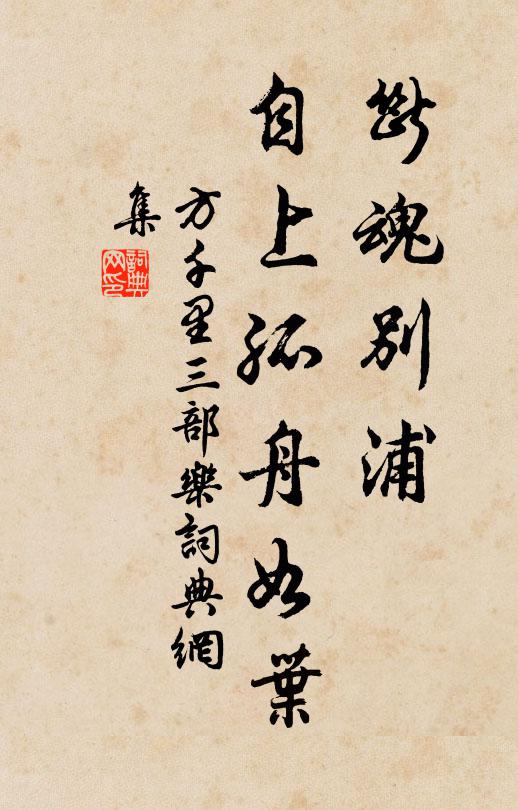 斷魂別浦
自上孤舟如葉
方千里三部樂詞典網
集
詞典網印